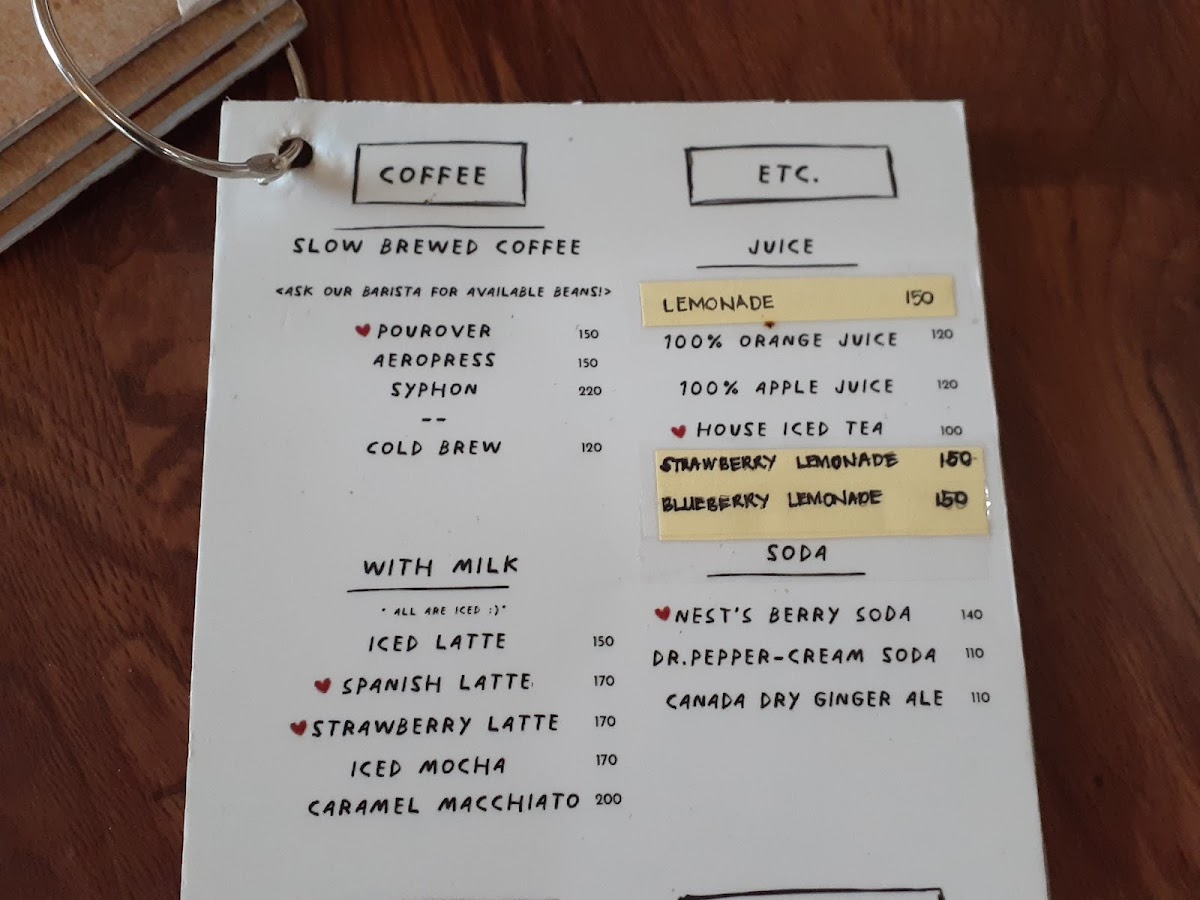 COFFEE
SLOW BREWED COFFEE
<ASK OUR BARISTA FOR AVAILABLE BEANS!>
POUROVER 150
AEROPRESS 150
SYPHON 220
--
COLD BREW 120
WITH MILK
* ALL ARE ICED :)*
ICED LATTE 150
SPANISH LATTE 170
STRAWBERRY LATTE 170
ICED MOCHA 170
CARAMEL MACCHIATO 200
ETC.
JUICE
LEMONADE 150
100% ORANGE JUICE 120
100% APPLE JUICE 120
HOUSE ICED TEA 100
STRAWBERRY LEMONADE 150
BLUEBERRY LEMONADE 150
SODA
NEST'S BERRY SODA 140
DR.PEPPER-CREAM SODA 110
CANADA DRY GINGER ALE 110